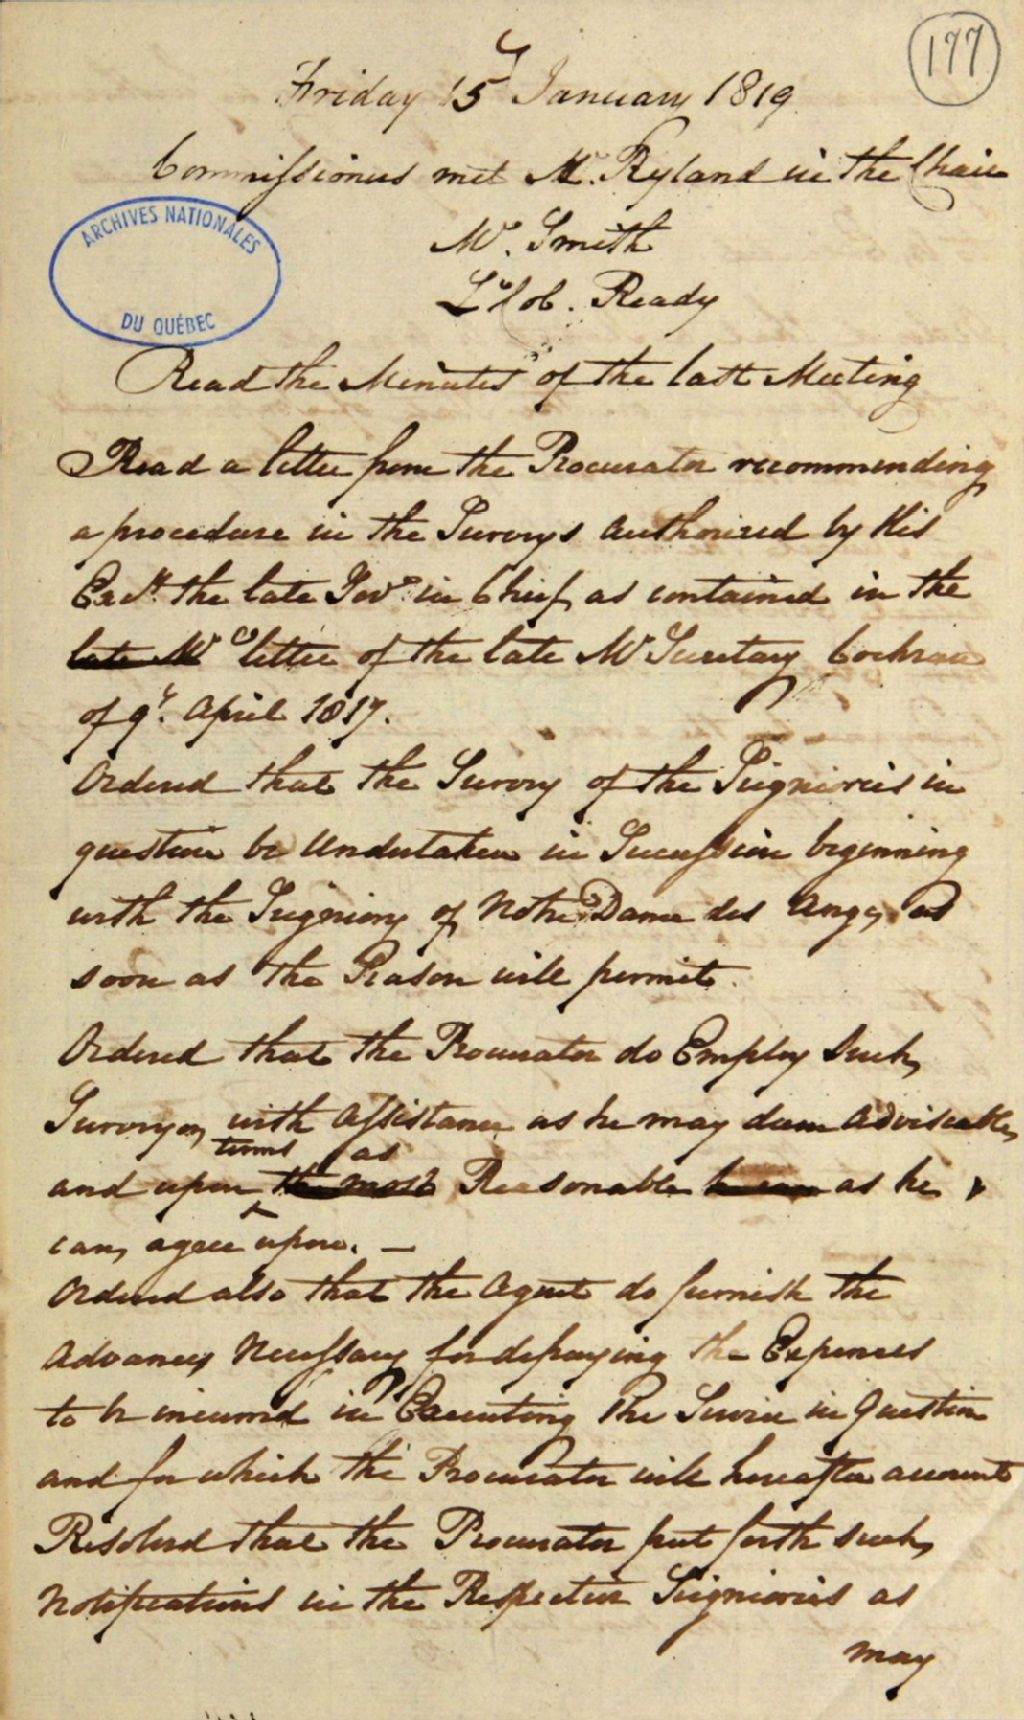 177
Friday 15 January 1819
Commissioners met Mr. Ryland in the Chair
Mr. Smith
Lt Col. Ready
ARCHIVES NATIONALES
DU QUÉBEC
Read the Minutes of the last Meeting
Read a letter from the Procurator recommending
a procedure in the Surveys authorized by His
Excy. the late Govr. in Chief, as contained in the
late Mr letter of the late Mr Secretary Cochran
of 9th. April 1817.
Ordered that the Survey of the Seigniories in
question be Undertaken in Succession beginning
with the Seigniory of Notre Dame des Anges, as
soon as the Season will permit.
Ordered that the Procurator do Employ Such
Surveyor, with Assistance as he may deem Adviseable,
terms as
and upon the most Reasonable as he
can, agree upon. —
Ordered also that the Agent do furnish the
Advances Necessary for defraying the Expences
to be incurred in Executing the Service in Question
and for which the Procurator will hereafter account
Resolved that the Procurator put forth such,
Notifications in the Respective Seigniories as
may